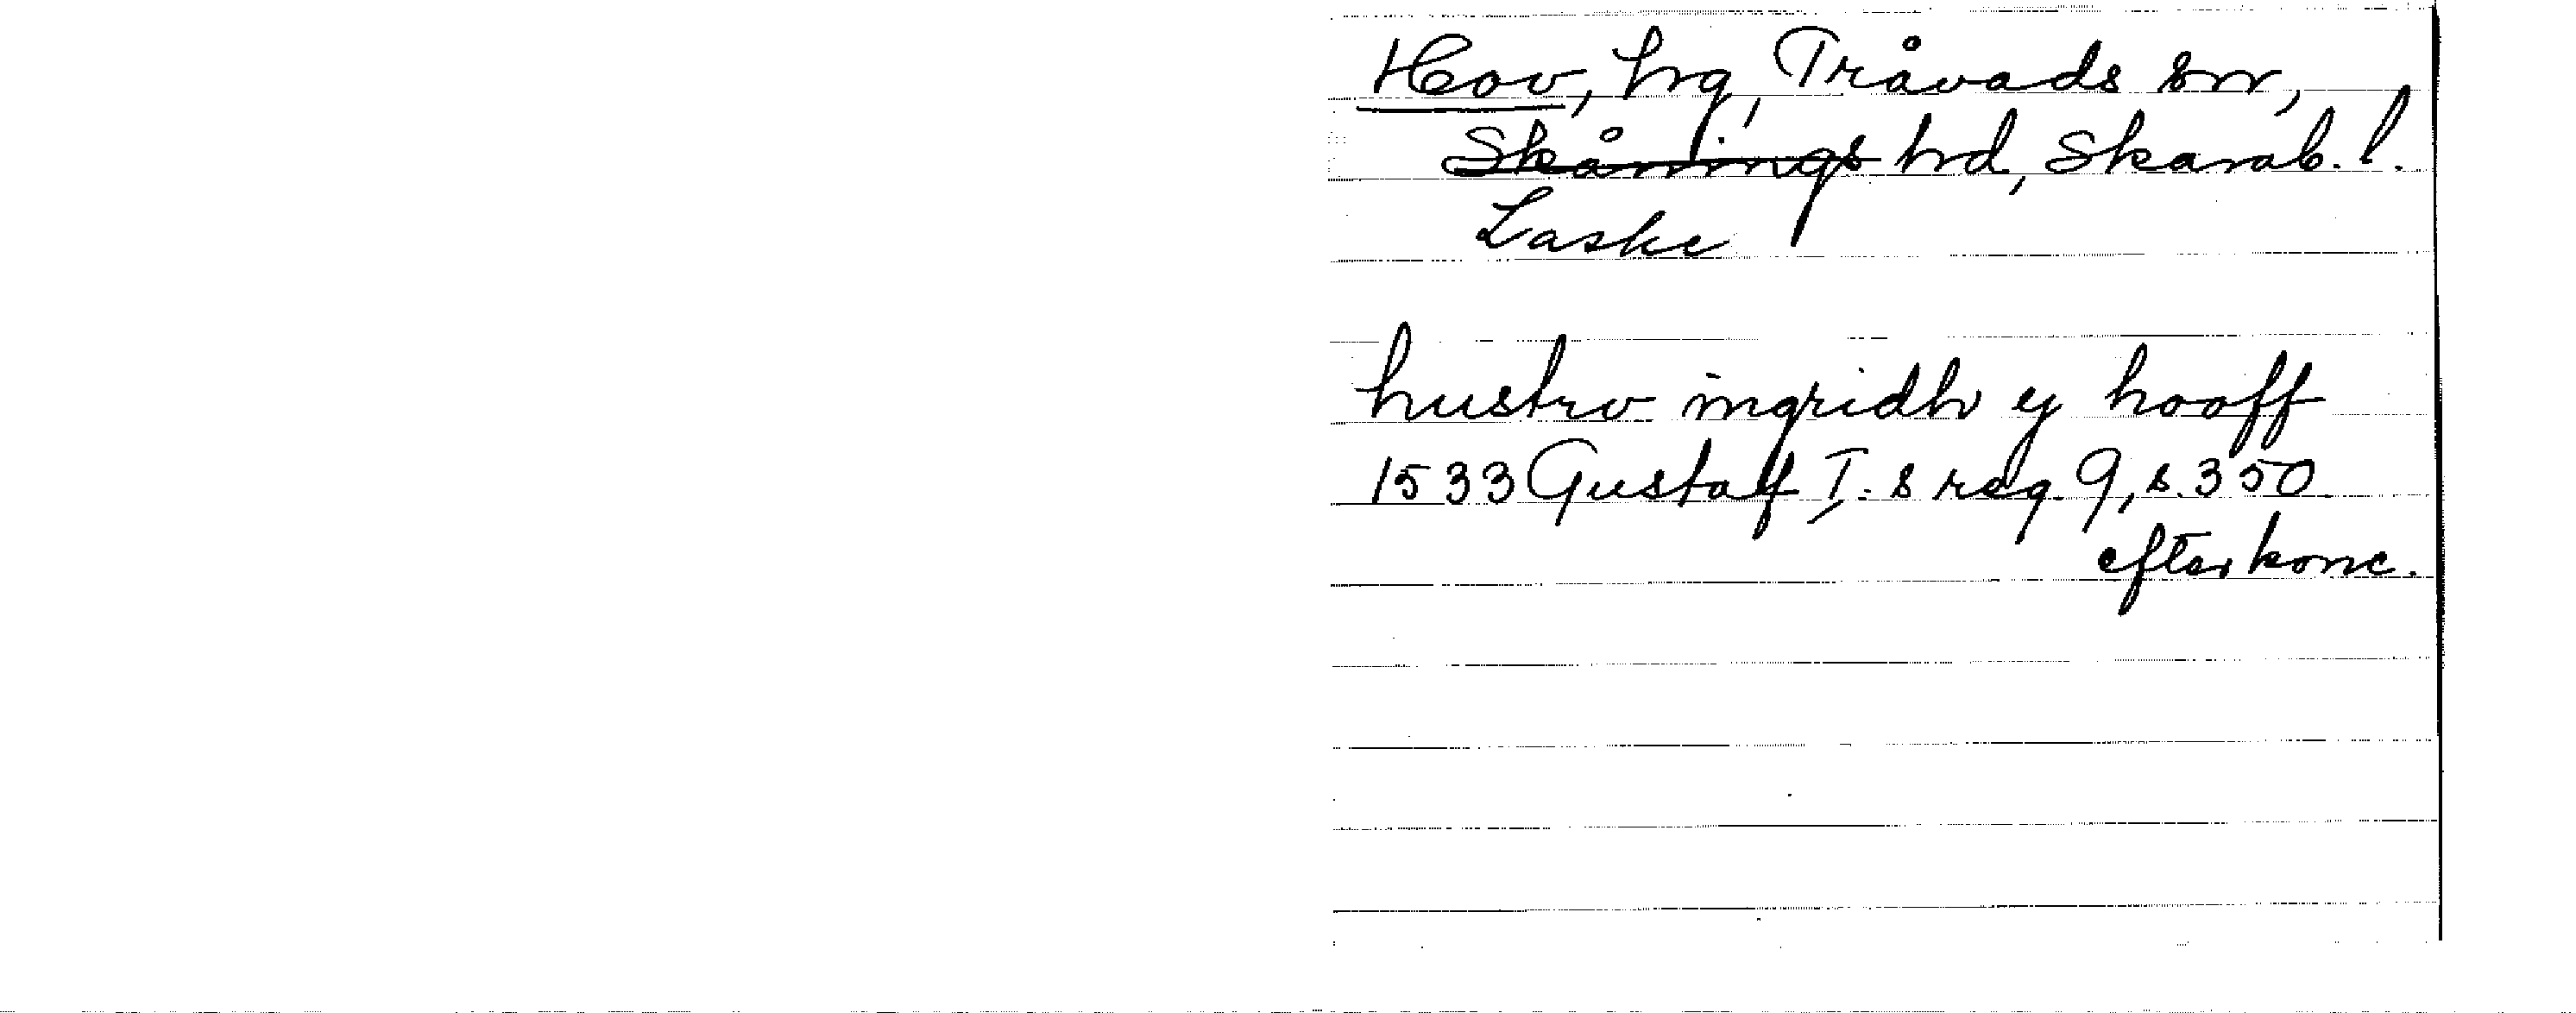 Hov, hg, Tråvads sn,
Skånings hd, Skarab. l.
Laske
hustrv ingridh y hooff
1533 Gustaf I:s reg. 9, s. 350
efter konc.